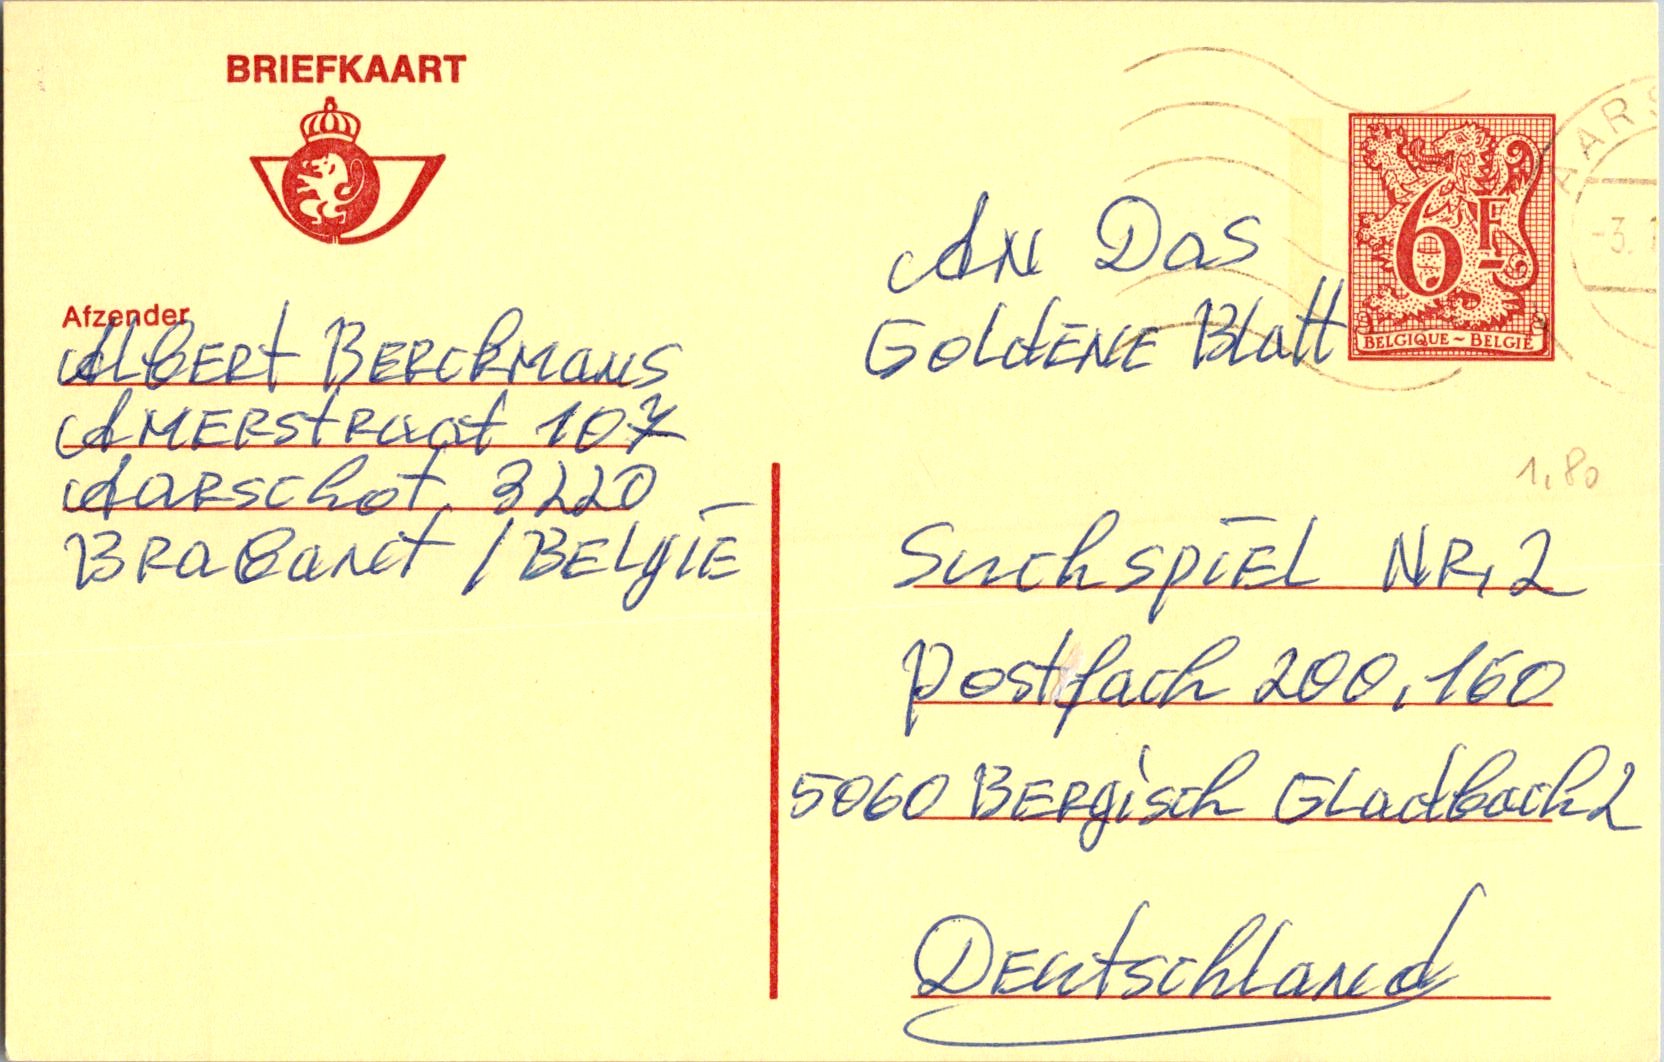 BRIEFKAART
Afzender
Albert Berckmans
Amerstraat 107
Aarschot 3220
Brabant / België
6F
BELGIQUE ~ BELGIË
AARS
-3.1
An Das
Goldene Blatt
1,80
Suchspiel Nr, 2
Postfach 200,160
5060 Bergisch Gladbach 2
Deutschland